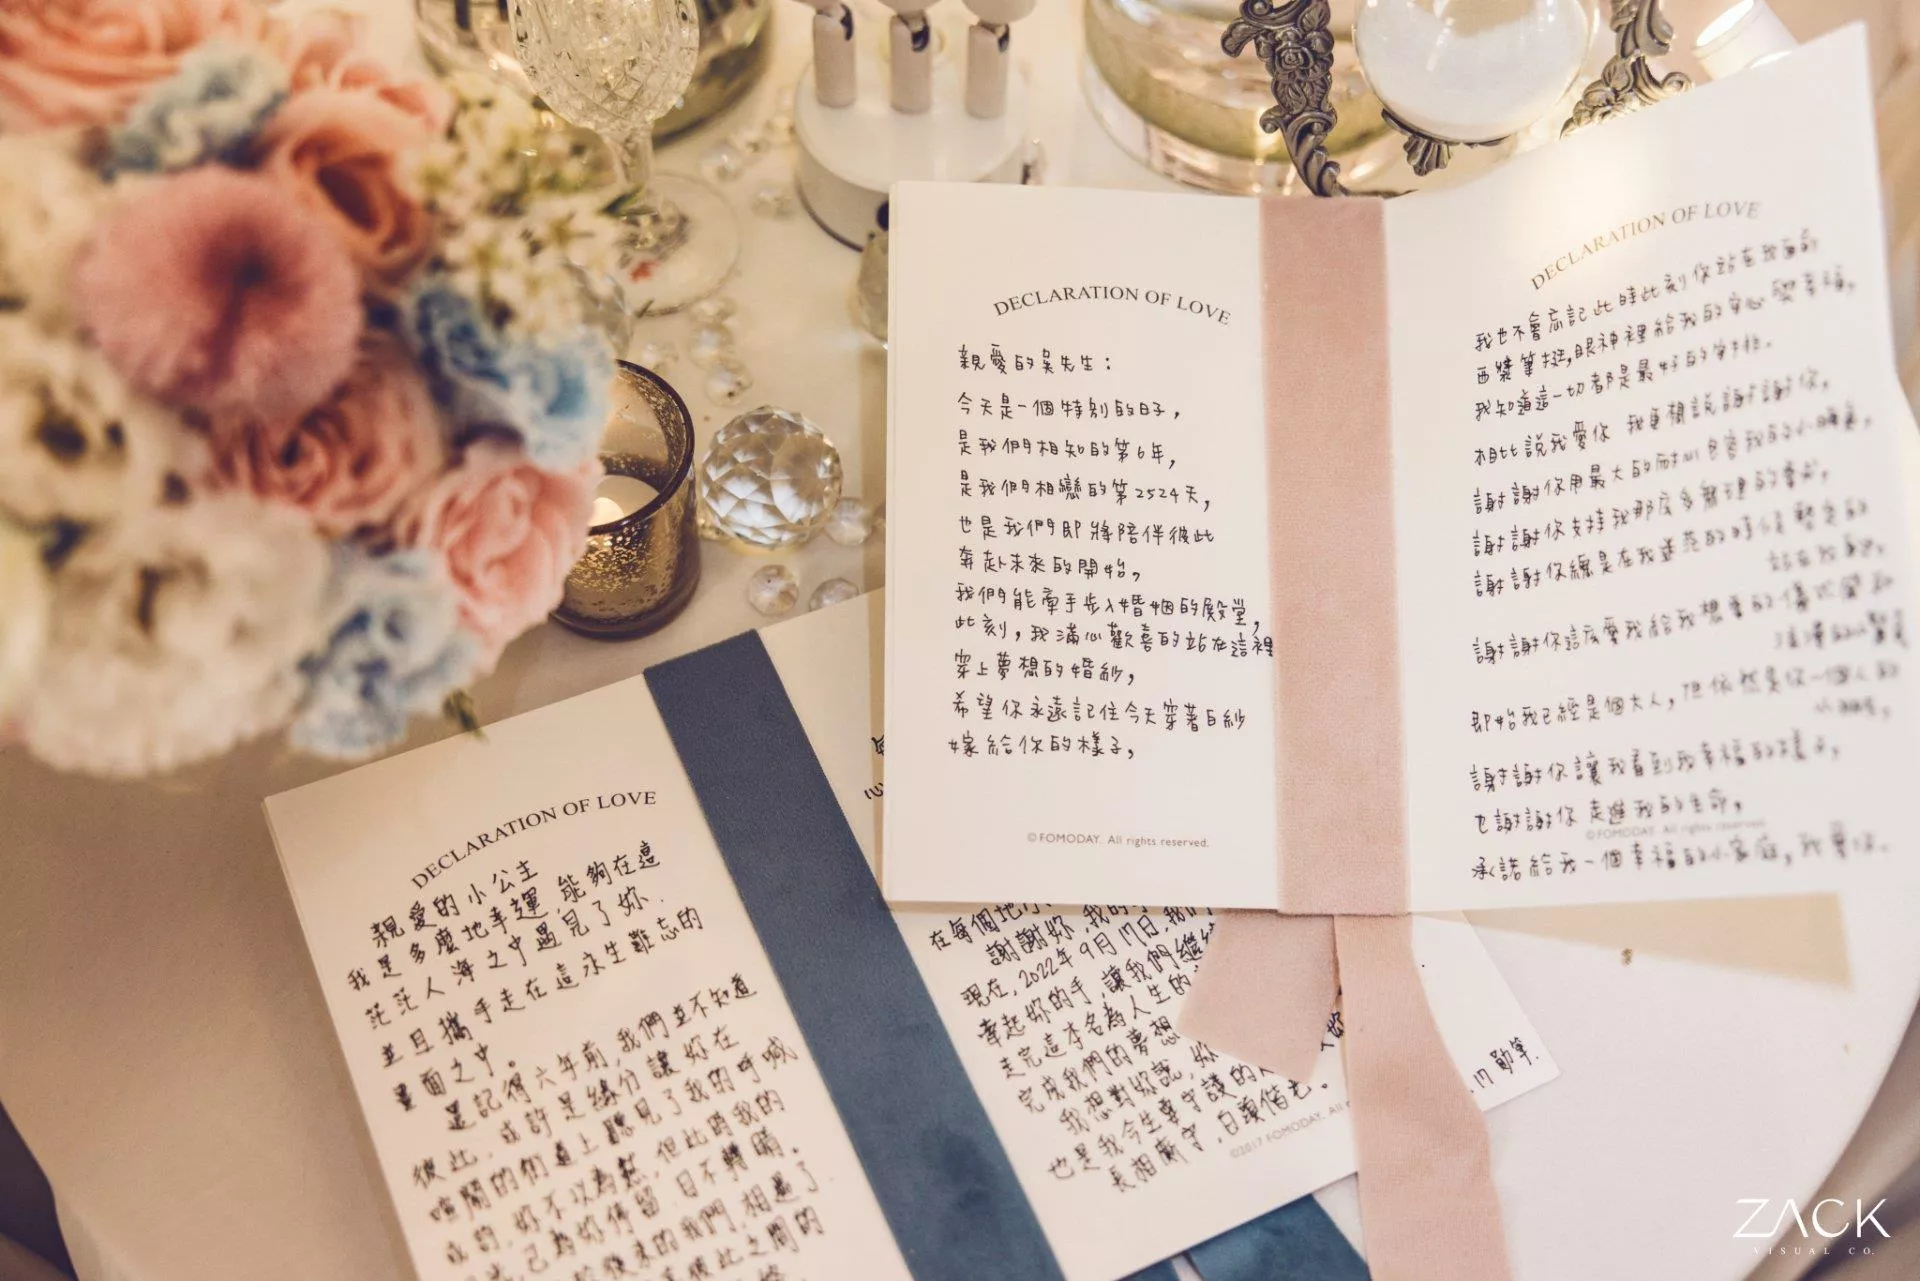 DECLARATION OF LOVE
親愛的吳先生：
今天是一個特別的日子，
是我們相知的第6年，
是我們相戀的第2524天，
也是我們即將陪伴彼此
奔赴未來的開始，
我們能牽手步入婚姻的殿堂，
此刻，我滿心歡喜的站在這裡
穿上夢想的婚紗，
希望你永遠記住今天穿著白紗
嫁給你的樣子，
©FOMODAY. All rights reserved.
DECLARATION OF LOVE
我也不會忘記此時此刻你站在我面前
西裝筆挺，眼神裡給我的安心與幸福，
我知道這一切都是最好的安排.
相比說我愛你 我更想說謝謝你，
謝謝你用最大的耐心包容我的小脾氣，
謝謝你支持我那麼多無理的要求，
謝謝你總是在我迷茫的時候堅定的
站在我身邊，
謝謝你這麼愛我給我想要的儀式感和
浪漫的小驚喜
即始我已經是個大人，但依然是你一個人的
小朋友，
謝謝你讓我看到我幸福的樣子，
也謝謝你走進我的生命，
©FOMODAY. All rights reserved.
承諾給我一個幸福的小家庭，我愛你.
DECLARATION OF LOVE
親愛的小公主
我是多麼地幸運,能夠在這
茫茫人海之中遇見了妳.
並且攜手走在這永生難忘的
畫面之中。
還記得六年前,我們並不知道
彼此,或許是緣分讓妳在
喧鬧的街道上聽見了我的呼喊
或的,妳不以為然,但此時我的
已為妳停留,目不轉睛。
後來的我們,相遇了
彼此之間的
在每個地
謝謝妳,我的
現在,2022年9月17日,我們
牽起妳的手,讓我們繼續
走完這本名為人生的
完成我們的夢想
我想對妳說,妳
也是我今生要守護的人
長相廝守,白頭偕老。
©2017 FOMODAY. All
.17 勛筆.
ZACK
VISUAL CO.